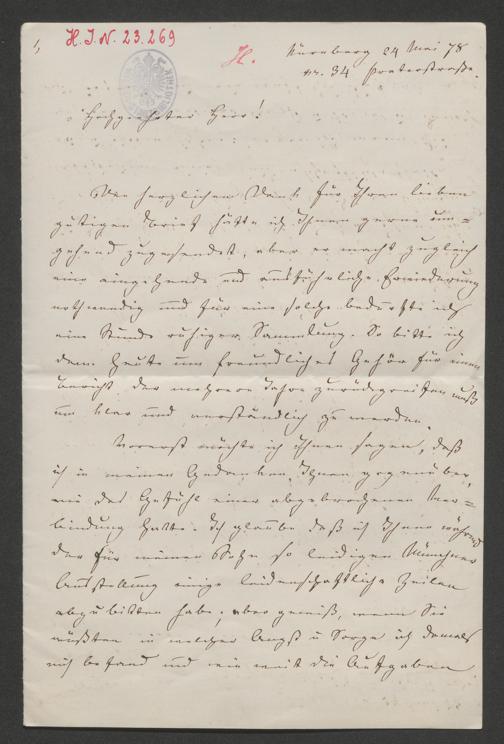 1,
H. I. N. 23.269
H.
Nürnberg 24 Mai 78
nr. 34 Praterstraße.
Hochgeehrter Herr!
Den herzlichen Dank für Ihren lieben
gütigen Brief hätte ich Ihnen gerne um=
gehend zugesendet, aber er macht zugleich
eine eingehende und ausführliche Erwiederung
nothwendig und für eine solche bedurfte ich
eine Stunde ruhiger Sammlung. So bitte ich
denn heute um freundliches Gehör für einen
Bericht, der mehrere Jahre zurückgreifen muß
um klar und verständlich zu werden.
Vorerst möchte ich Ihnen sagen, daß
ich in meinen Gedanken, Ihnen gegenüber,
nie das Gefühl einer abgebrochenen Ver=
bindung hatte. Ich glaube daß ich Ihnen während
der für meinen Sohn so leidigen Münchner
Ausstellung einige leidenschaftliche Zeilen
abzubitten habe; aber gewiß, wenn Sie
wüßten in welcher Angst u Sorge ich damals
mich befand und wie weit die Aufgaben